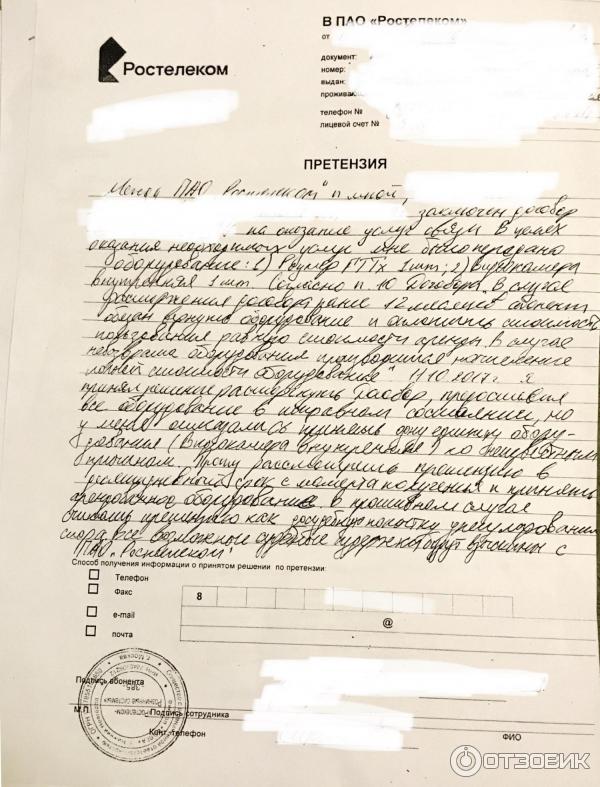 В ПАО «Ростелеком»
от
документ:
номер:
выдан:
прожива
телефон №
лицевой счет №
Ростелеком
ПРЕТЕНЗИЯ
Между ПАО Ростелеком" и мной,
заключен договор
на оказание услуг связи. В целях
оказания необходимых услуг мне было передано
оборудование: 1) Роутер FTTx 1 шт; 2) Видеокамера
внутренняя 1 шт. Согласно п. 10 Договора "В случае
расторжения договора ранее 12 месяцев абонент
обязан вернуть оборудование и оплатить стоимость
пользования равную стоимости аренды. В случае
невозврата оборудования производится начисление
полной стоимости оборудования" 11.10.2017г. я
принял решение расторгнуть договор, предоставил
все оборудование в исправном состоянии, но
у меня отказались принять одну единицу обору-
дования (Видеокамера внутренняя) по
причинам. Прошу рассмотреть претензию в
срок с момента получения и принять
оборудование в противном случае
претензию как досудебную попытку урегулирования
спора, все возможные судебные издержки будут взысканы с
ПАО „Ростелеком"
Способ получения информации о принятом решении по претензии:
Телефон
Факс
8
e-mail
@
почта
Подпись абонента
М.П.
Подпись сотрудника
Конт. телефон
ФИО
ОТЗОВИК